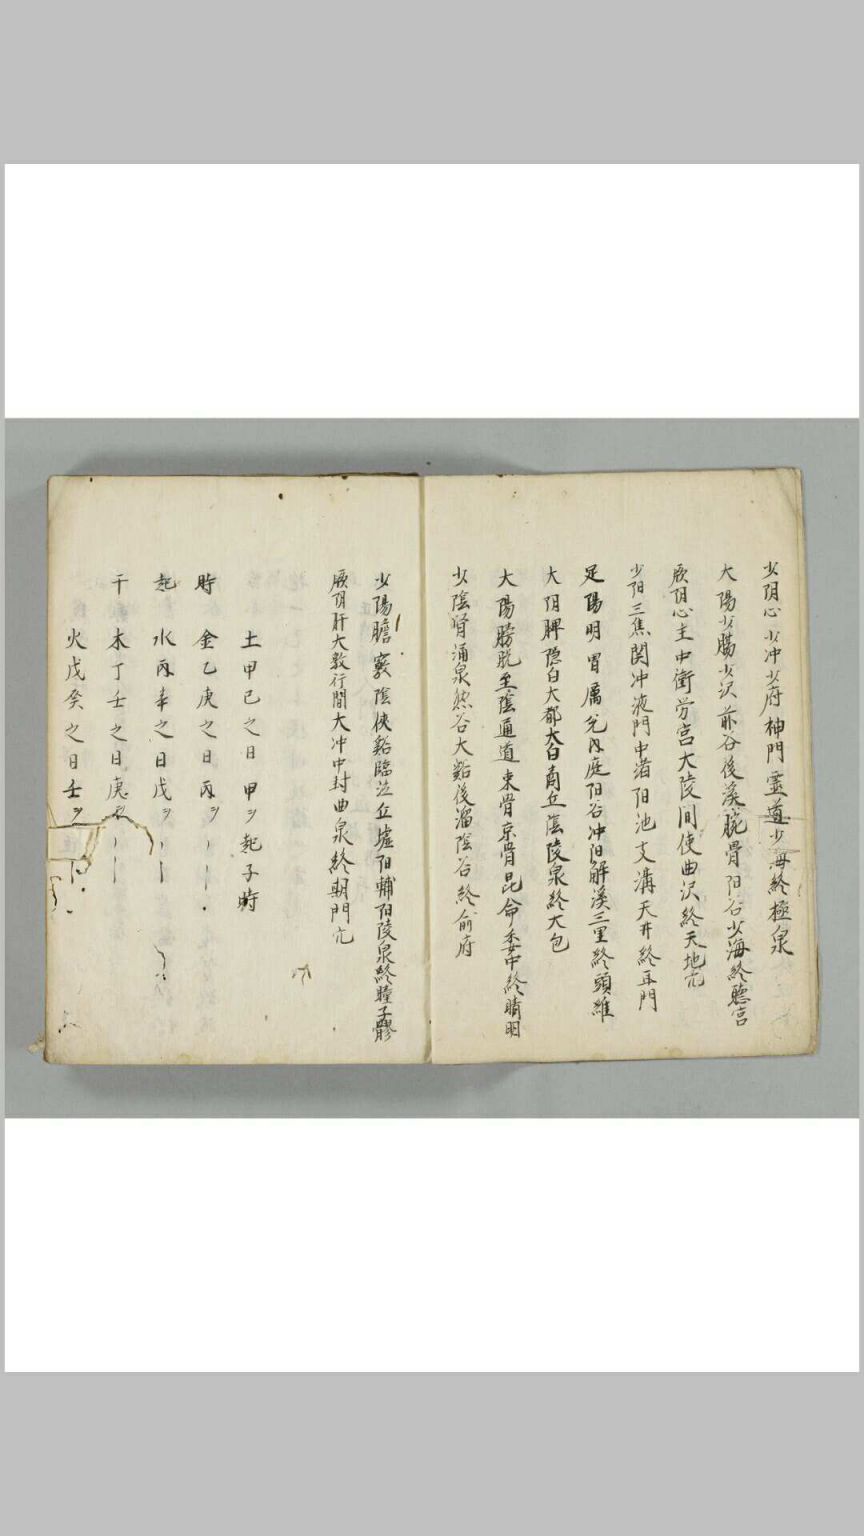 少阴心 少冲少府神門霊道少海終極泉
大陽少腸少沢前谷後溪腕骨阳谷少海終聽宮
厥阴心主中衝労宮大陵间使曲沢終天地穴
少阳三焦関冲液門中渚阳池支溝天井終耳門
足陽明胃厲兌内庭阳谷冲阳解溪三里終頭維
大阴脾隠白大都大白商丘陰陵泉終大包
大陽膀胱至陰通道束骨京骨昆命委中終睛明
少陰腎涌泉然谷大谿後溜陰谷終俞府
少陽膽竅陰侠谿臨泣丘墟阳輔阳陵泉終瞳子髎
厥阴肝大敦行間大冲中封曲泉終期門穴
土甲己之日 甲ヲ起子時
時 金乙庚之日丙ヲ
起 水丙辛之日戊ヲ
干 木丁壬之日庚ヲ
火戊癸之日壬ヲ